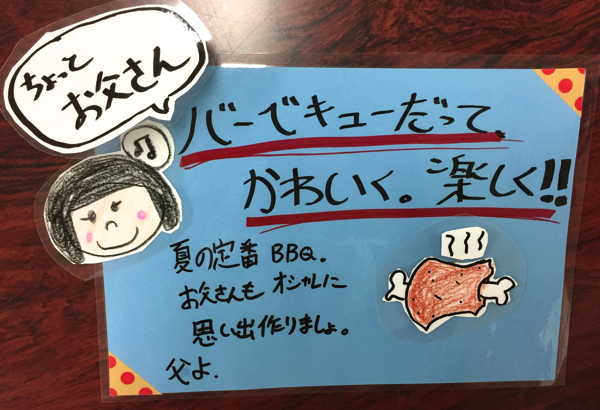 ちょっと
お父さん
バーベキューだって、
かわいく。楽しく!!
夏の定番 BBQ.
お父さんも オシャレに
思い出作りましょ。
父よ.